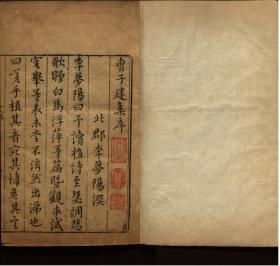 曹子建集序
北郡李夢陽譔
李夢陽曰予讀植詩至瑟調怨
歌贈白馬浮萍等篇暨觀求試
審舉等表未嘗不泫然出涕也
曰嗟乎植其音宛其情危其言